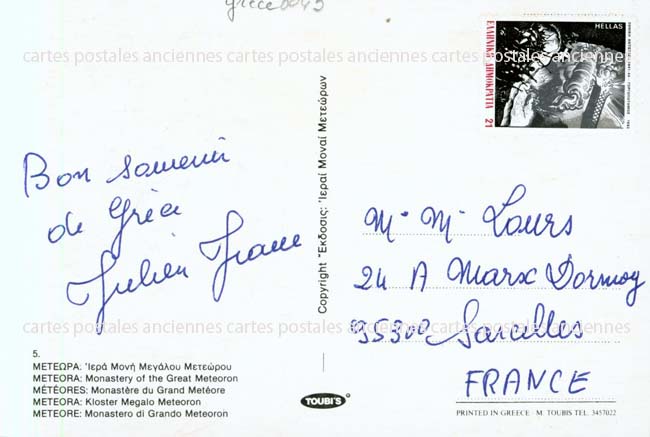 Grèce 0045
HELLAS
ΕΛΛΗΝΙΚΗ ΔΗΜΟΚΡΑΤΙΑ 21
cartes postales anciennes cartes postales anciennes cartes postales anciennes
Bon souvenir
de Grèce
Julien
Copyright "Εκδοσις: Ἱεραί Μοναί Μετεώρων
Mr Me Lours
24 A Marx Dormoy
95300 Sarcelles
FRANCE
cartes postales anciennes cartes postales anciennes cartes postales anciennes
5.
ΜΕΤΕΩΡΑ: Ἱερά Μονή Μεγάλου Μετεώρου
METEORA: Monastery of the Great Meteoron
MÉTÉORES: Monastère du Grand Metéore
METEORA: Kloster Megalo Meteoron
METEORE: Monastero di Grando Meteoron
TOUBI'S
PRINTED IN GREECE - M. TOUBIS TEL. 3457022